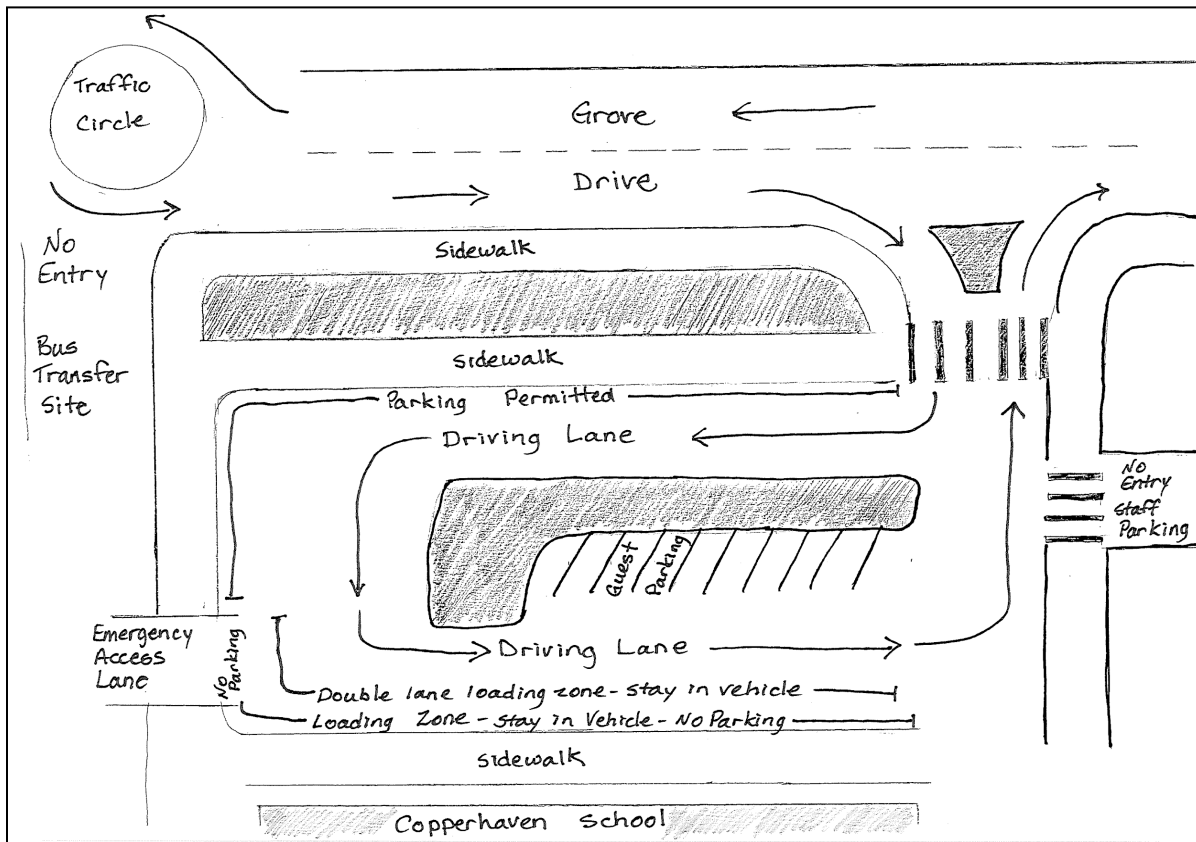 Traffic
Circle
Grove
Drive
No
Entry
Sidewalk
Bus
Transfer
Site
Sidewalk
Parking Permitted
Driving Lane
No
Entry
Staff
Parking
Guest Parking
Emergency
Access
Lane
No Parking
Driving Lane
Double lane loading zone - stay in vehicle
Loading Zone - stay in Vehicle - No Parking
Sidewalk
Copperhaven School